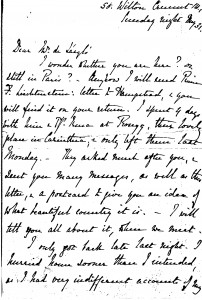 54. Wilton Crescent W.
Tuesday night
Dear Mr. de László
I wonder whether you are here? or
still in Paris? - Anyhow I will send Prince
F. Liechtenstein's letter to Hampstead, & you
will find it on your return. I spent 4 days
with him & Pss Nora at Rosegg, their lovely
place in Carinthia, & only left them last
Monday. - They asked much after you, &
sent you many messages, as well as this
letter, & a postcard to give you an idea of
what beautiful country it is. - I will
tell you all about it, when we meet.
I only got back late last night. I
hurried home sooner than I intended
as I had very indifferent accounts of my